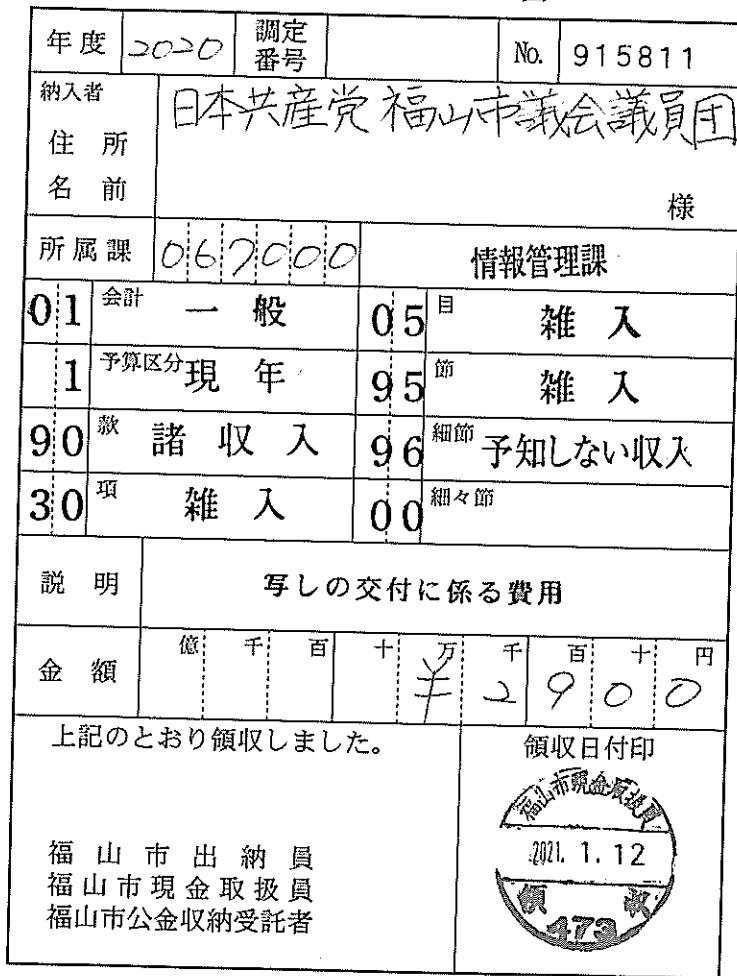 年度 2020 調定番号 No. 915811
納入者
住所
名前
日本共産党福山市議会議員団
様
所属課 067000 情報管理課
01 会計 一般 05 目 雑入
1 予算区分 現年 95 節 雑入
90 款 諸収入 96 細節 予知しない収入
30 項 雑入 00 細々節
説明 写しの交付に係る費用
金額 億 千 百 十 万 千 百 十 円
¥2900
上記のとおり領収しました。
領収日付印
福山市現金取扱員
2021. 1. 12
領収
473
福山市出納員
福山市現金取扱員
福山市公金収納受託者